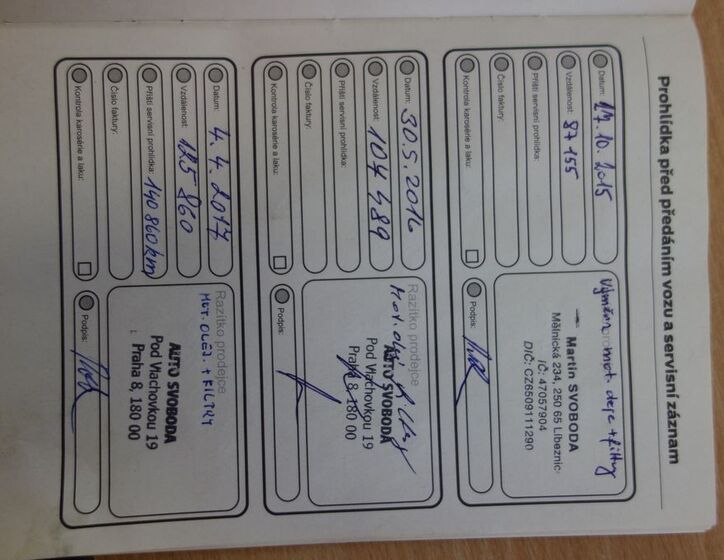 Prohlídka před předáním vozu a servisní záznam
Datum: 27.10.2015
Vzdálenost: 87 155
Příští servisní prohlídka:
Číslo faktury:
Kontrola karosérie a laku:
Výměna mot. oleje + filtry
Martin SVOBODA
Mělnická 234, 250 65 Líbeznice
IČ: 47057904
DIČ: CZ6509111290
Podpis:
Datum: 30.5.2016
Vzdálenost: 104 489
Příští servisní prohlídka:
Číslo faktury:
Kontrola karosérie a laku:
Razítko prodejce
Mot. olej
AUTO SVOBODA
Pod Vlachovkou 19
Praha 8, 180 00
Podpis:
Datum: 4.4.2017
Vzdálenost: 125 860
Příští servisní prohlídka: 140 860 km
Číslo faktury:
Kontrola karosérie a laku:
Razítko prodejce
MOT. OLEJ. + FILTRY
AUTO SVOBODA
Pod Vlachovkou 19
Praha 8, 180 00
Podpis: